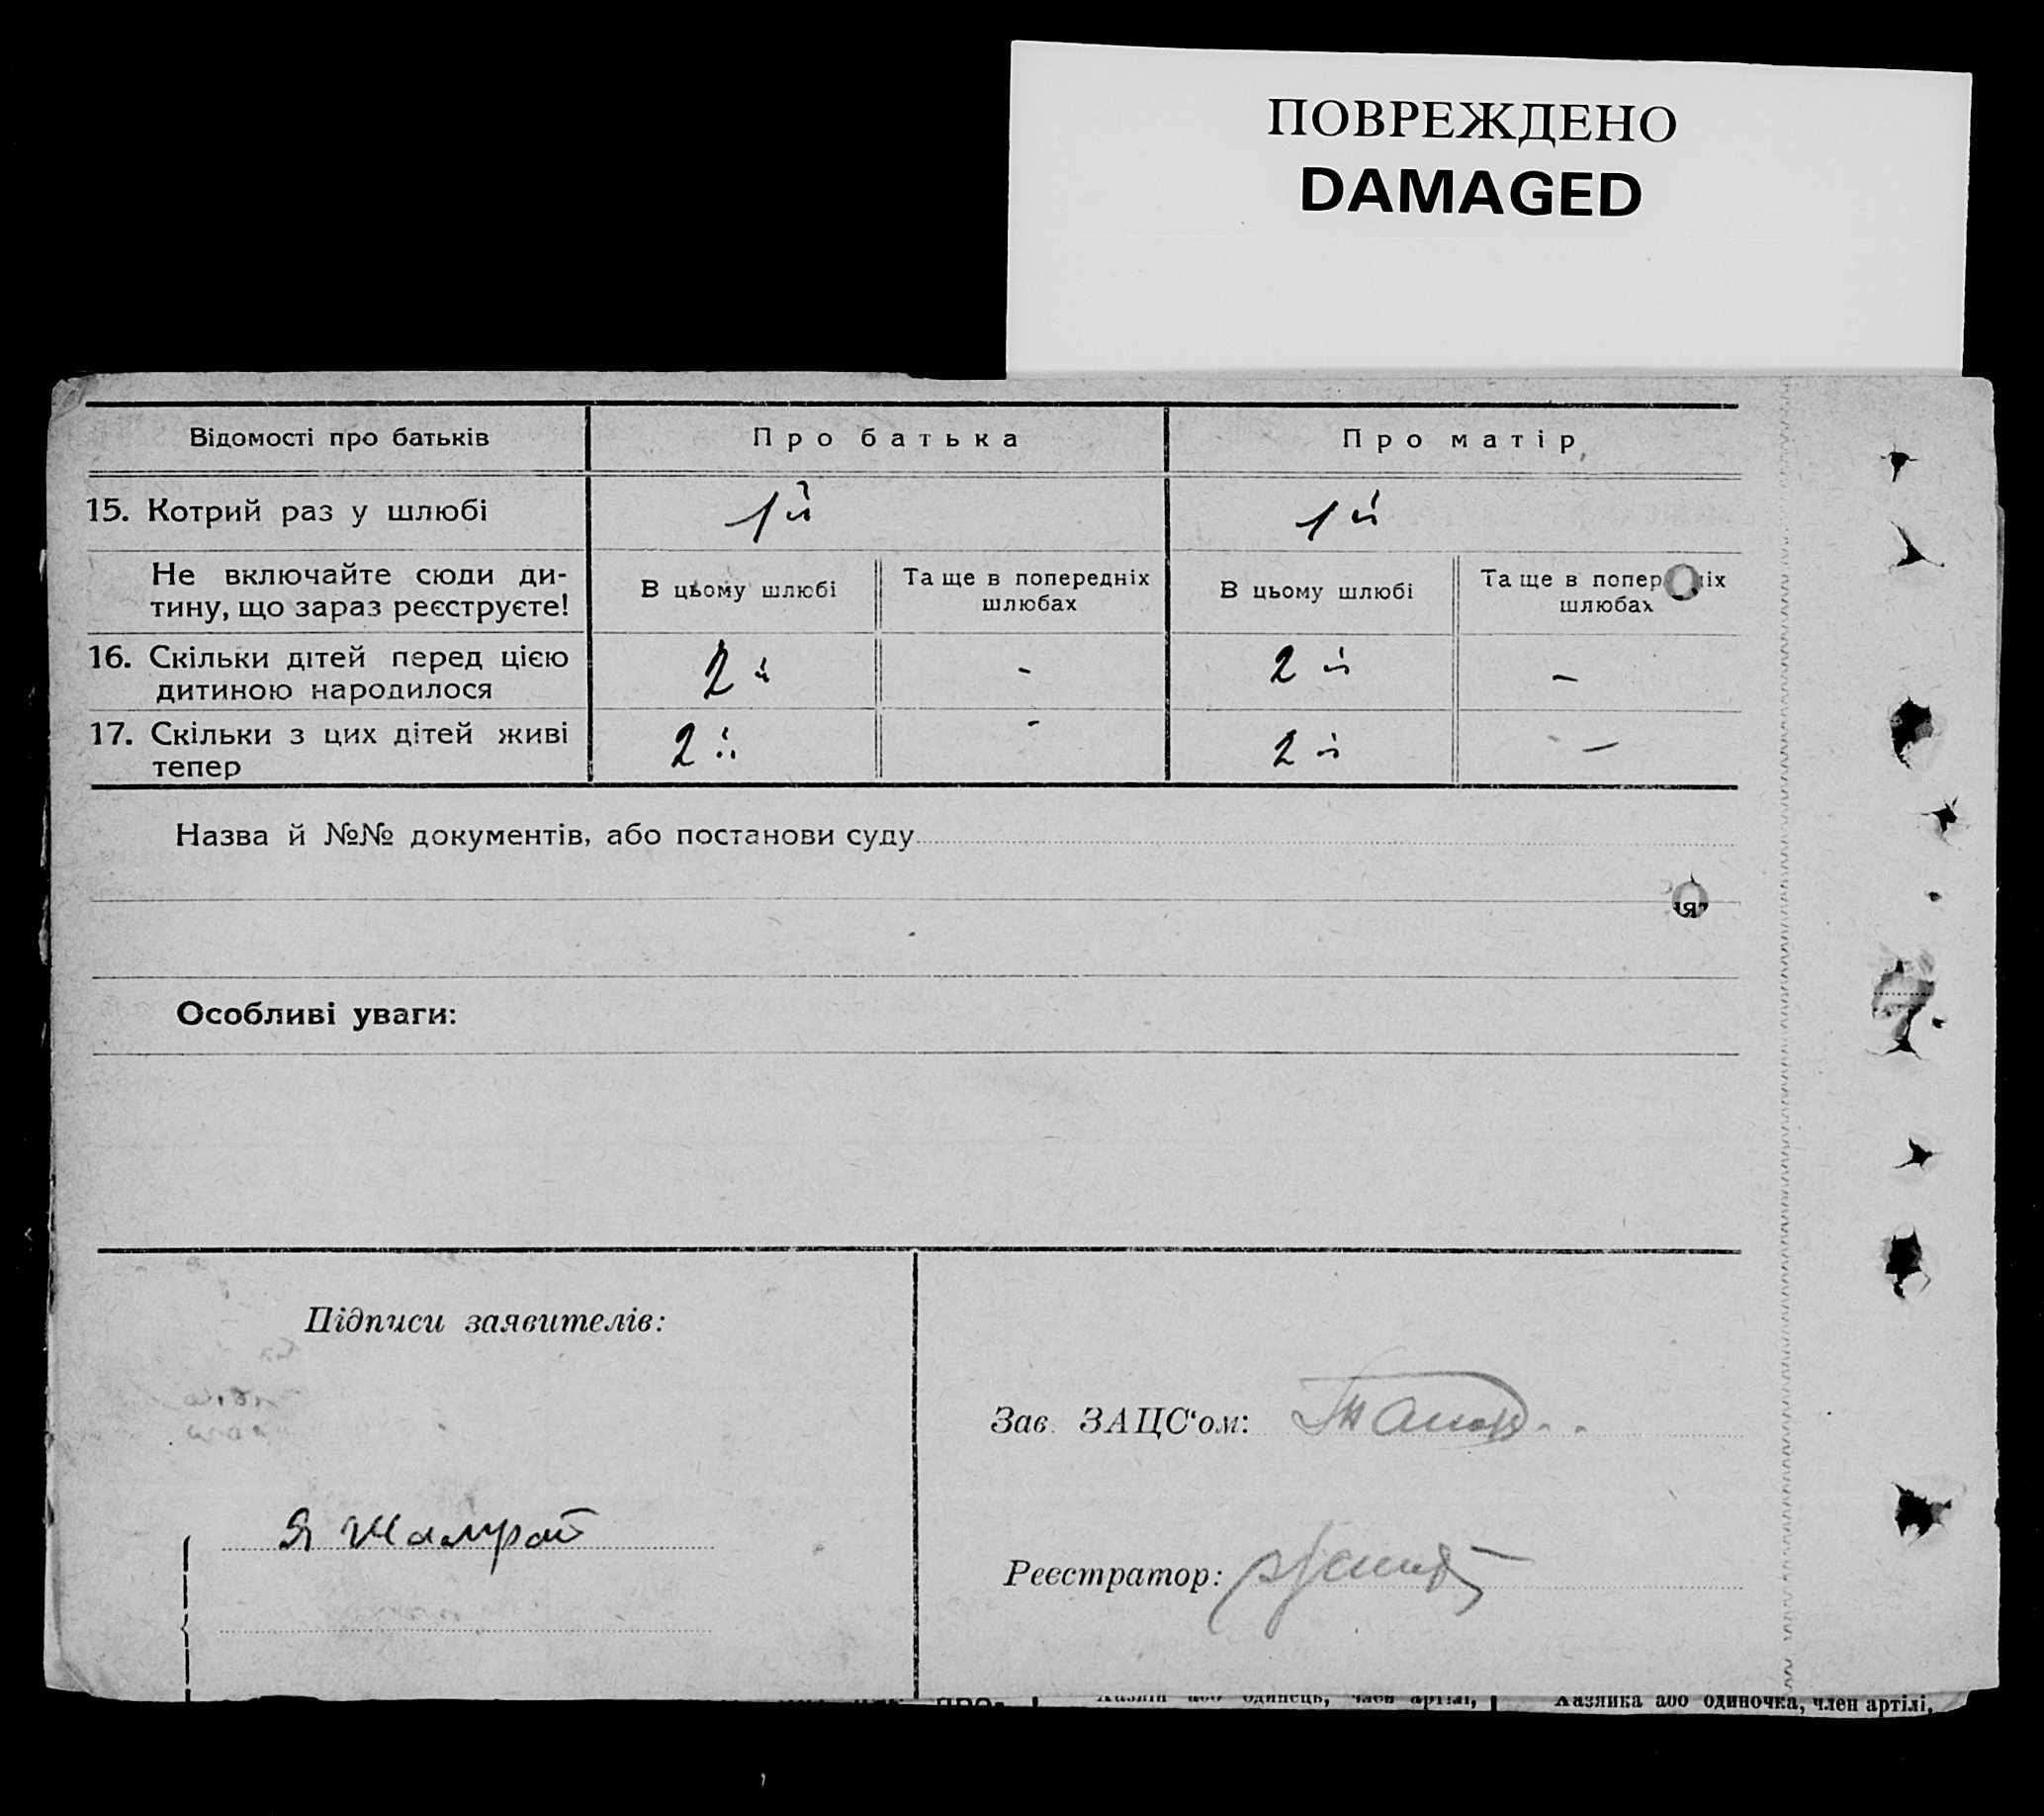 ПОВРЕЖДЕНО
DAMAGED
Відомості про батьків
Про батька
Про матір
15. Котрий раз у шлюбі
1й
1й
Не включайте сюди ди-
тину, що зараз реєструєте!
В цьому шлюбі
Та ще в попередніх
шлюбах
В цьому шлюбі
Та ще в попер іх
шлюбах
16. Скільки дітей перед цією
дитиною народилося
2й
-
2й
-
17. Скільки з цих дітей живі
тепер
2й
-
2й
-
Назва й №№ документів, або постанови суду
Особливі уваги:
Підписи заявителів:
Зав. ЗАЦС‘ом:
Реєстратор:
Хазяїн або одинець, член артілі,
Хазяйка або одиночка, член артілі,